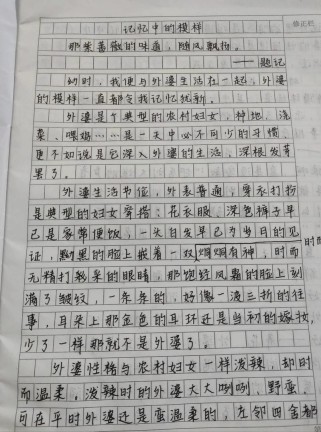 记忆中的模样
那紫蔷薇的味道，随风飘扬。
——题记
幼时，我便与外婆生活在一起，外婆
的模样一直都令我记忆犹新。
外婆是个典型的农村妇女，种地、浇
菜、喂鸡……是一天中必不可少的习惯，
更不如说是它深入外婆的生活，深根发芽
罢了。
外婆生活节俭，外表普通，穿衣打扮
是典型的妇女穿搭：花衣服、深色裤子早
已是家常便饭，一头白发早已为当日的见
证，黝黑的脸上嵌着一双炯炯有神，时而
时而
无精打彩的眼睛，那饱经风霜的脸上刻
满了皱纹，一条条的，好像一波三折的往
事，耳朵上那金色的耳环还是当初的嫁妆，
少了一样那就不是外婆了。
外婆性格与农村妇女一样泼辣，却时
而温柔。泼辣时的外婆大大咧咧，野蛮，
可在平时外婆还是蛮温柔的，左邻四舍都